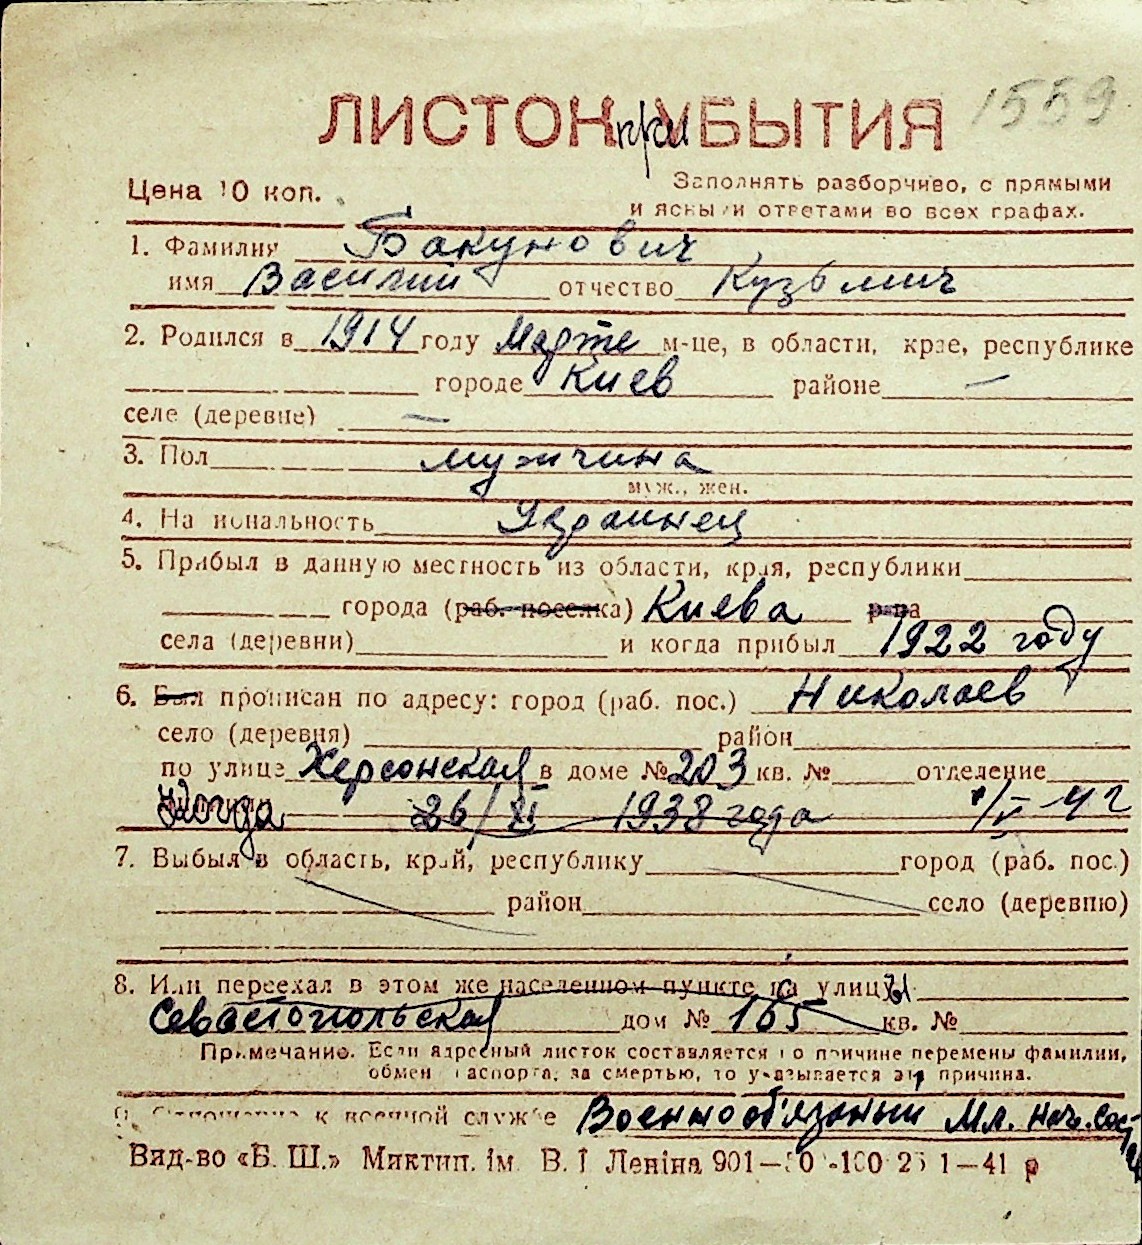 1559
ЛИСТОК при УБЫТИЯ
Цена 10 коп.
Заполнять разборчиво, с прямыми
и ясными ответами во всех графах.
1. Фамилия Бакунович
имя Василий отчество Кузьмич
2. Родился в 1914 году Марте м-це, в области, крае, республике
городе Киев районе —
селе (деревне) —
3. Пол мужчина
муж., жен.
4. Национальность Украинец
5. Прибыл в данную местность из области, края, республики
города (раб. поселка) Киева р-на
села (деревни) и когда прибыл 1922 году
6. Был прописан по адресу: город (раб. пос.) Николаев
село (деревня) район
по улице Херсонская в доме № 203 кв. № отделение
Когда 26/XI 1938 года 1/V-41
7. Выбыл в область, край, республику город (раб. пос.)
район село (деревню)
8. Или переехал в этом же населенном пункте на улицы
Севастопольская дом № 165 кв. №
Примечание. Если адресный листок составляется по причине перемены фамилии,
обмен паспорта, за смертью, то указывается эта причина.
9. Отношение к военной службе Военнообязаный Мл. нач. сост
Вид-во «Б. Ш.» Миктип. ім. В. І. Леніна 901— -100 25 1—41 р